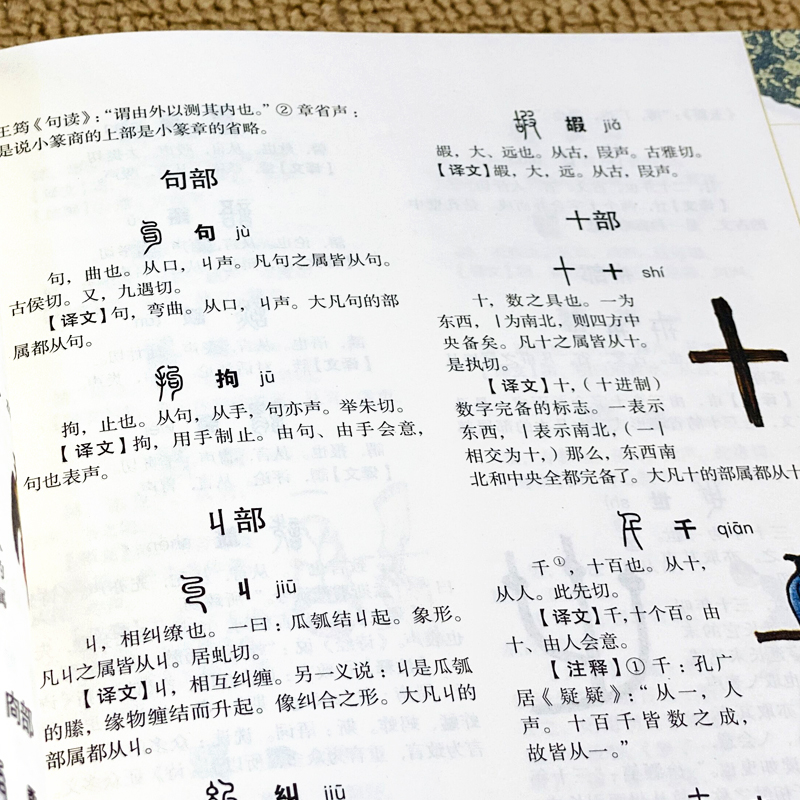 王筠《句读》：“谓由外以测其内也。”② 章省声：
是说小篆商的上部是小篆章的省略。
句部
句 jù
句，曲也。从口，丩声。凡句之属皆从句。
古侯切。又，九遇切。
【译文】句，弯曲。从口，丩声。大凡句的部
属都从句。
拘 jū
拘，止也。从句，从手，句亦声。举朱切。
【译文】拘，用手制止。由句、由手会意，
句也表声。
丩部
丩 jiū
丩，相纠缭也。一曰：瓜瓠结丩起。象形。
凡丩之属皆从丩。居虬切。
【译文】丩，相互纠缠。另一义说：丩是瓜瓠
的縢，缘物缠结而升起。像纠合之形。大凡丩的
部属都从丩。
纠 jiū
嘏 jiǎ
嘏，大、远也。从古，叚声。古雅切。
【译文】嘏，大、远。从古，叚声。
十部
十 shí
十，数之具也。一为
东西，丨为南北，则四方中
央备矣。凡十之属皆从十。
是执切。
【译文】十，（十进制）
数字完备的标志。一表示
东西，丨表示南北，（一丨
相交为十，）那么，东西南
北和中央全都完备了。大凡十的部属都从十
千 qiān
千①，十百也。从十，
从人。此先切。
【译文】千，十个百。由
十、由人会意。
【注释】①千：孔广
居《疑疑》：“从一，人
声。十百千皆数之成，
故皆从一。”